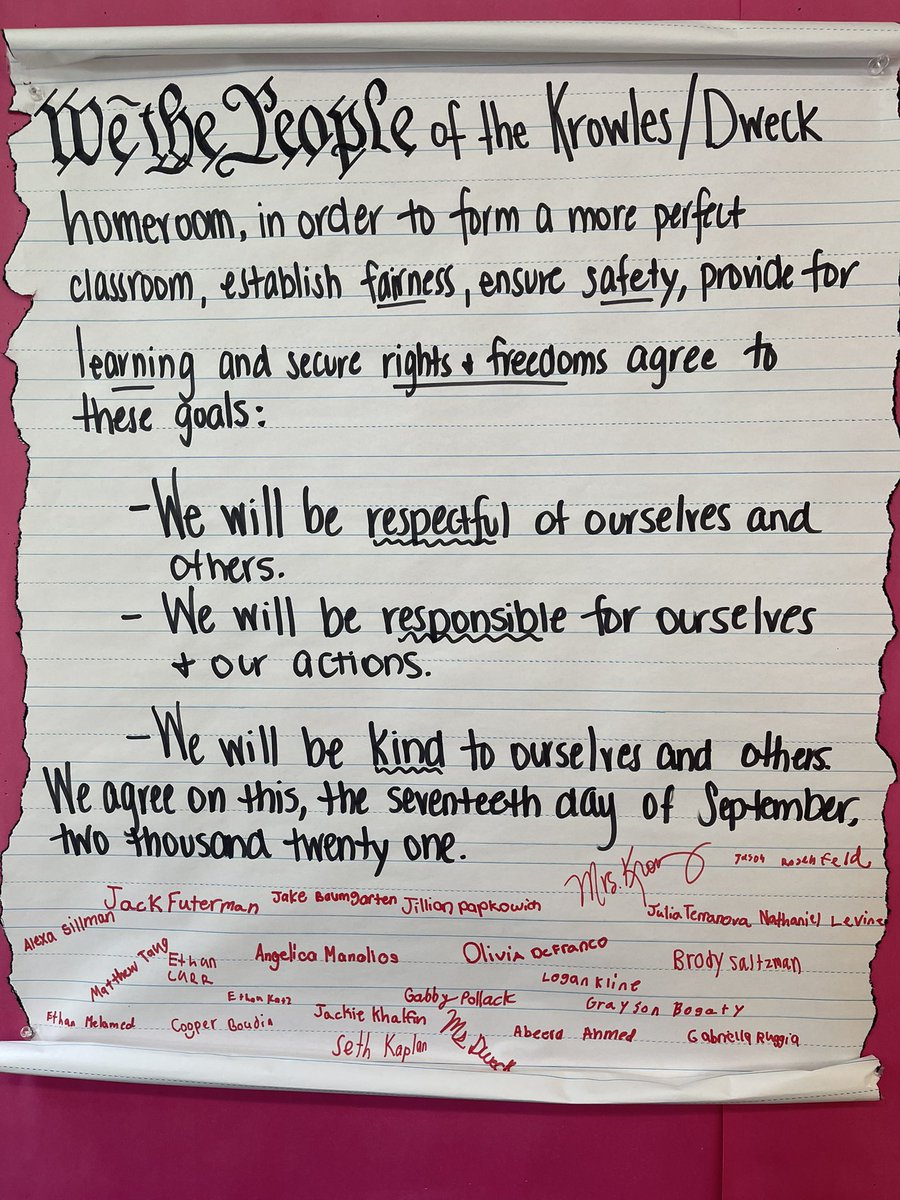 We the People of the Krowles/Dweck
homeroom, in order to form a more perfect
classroom, establish fairness, ensure safety, provide for
learning and secure rights + freedoms agree to
these goals:
- We will be respectful of ourselves and
others.
- We will be responsible for ourselves
+ our actions.
- We will be kind to ourselves and others.
We agree on this, the seventeeth day of September,
two thousand twenty one.
Mrs. Jason Rosenfeld
Jack Futerman Jake Baumgarten Jillian Papkowich
Julia Terranova Nathaniel Levine
Alexa Sillman
Matthew Tang Ethan Angelica Manolios Olivia DeFranco Brody Saltzman
Logan Kline
Ethan Katz Gabby Pollack Grayson Bogaty
Ethan Melamed Cooper Boudin Jackie Khalfin Ms. Dweck Abeera Ahmed Gabriella Ruggia
Seth Kaplan